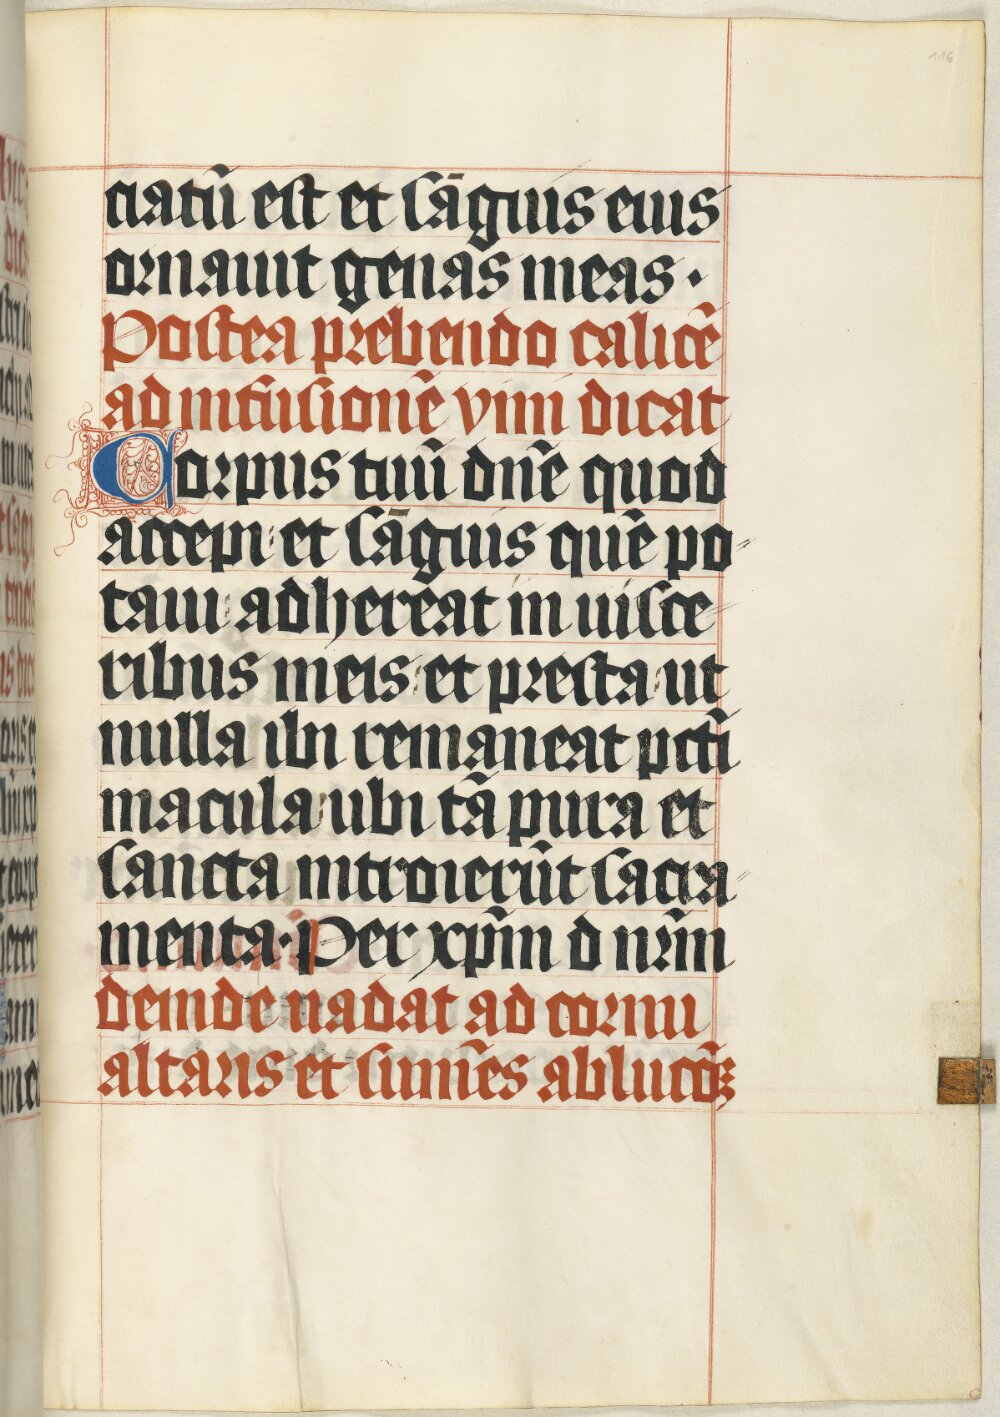 116
ciatū est et sāguis eius
ornauit genas meas ·
Postea prebendo calicē
ad infusionē vini dicat
Corpus tuū dn̄e quod
accepi et sāguis quē po
taui adhereat in uisce
ribus meis et presta ut
nulla ibi remaneat pcti
macula ubi tā pura et
sancta introierūt sacra
menta · Per xp̄m d nr̄m
deinde uadat ad cornu
altaris et sumēs